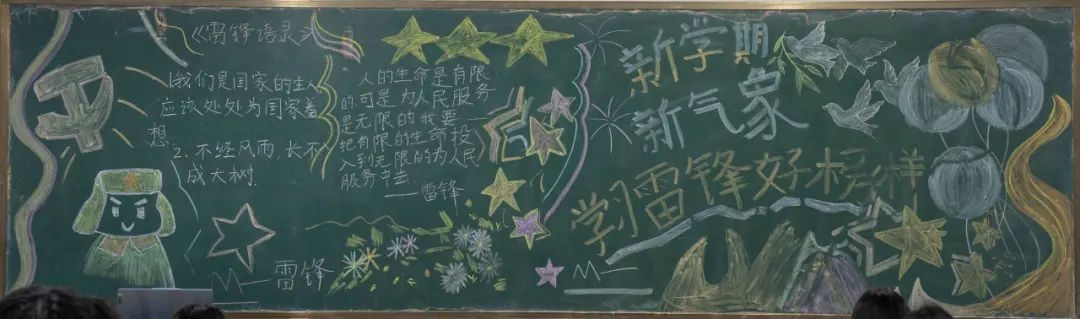 《雷锋语录》
1.我们是国家的主人
应该处处为国家着
想
2、不经风雨，长不
成大树.
雷锋
人的生命是有限
的可是为人民服务
是无限的我要
把有限的生命投
入到无限的为人民
服务中去
——雷锋
新学期
新气象
学习雷锋好榜样